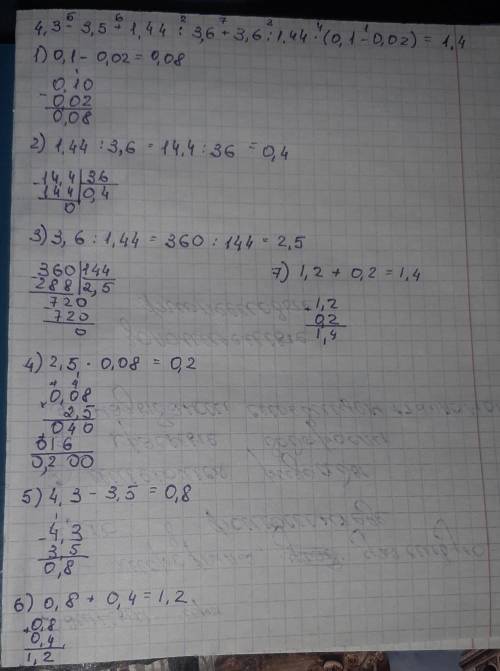 4,3 - 3,5 + 1,44 : 3,6 + 3,6 : 1,44 · (0,1 - 0,02) = 1,4
5 6 2 7 3 4 1
1) 0,1 - 0,02 = 0,08
- 0,10
0,02
0,08
2) 1,44 : 3,6 = 14,4 : 36 = 0,4
- 14,4 | 36
144 | 0,4
0
3) 3,6 : 1,44 = 360 : 144 = 2,5
- 360 | 144
288 | 2,5
- 720
720
0
7) 1,2 + 0,2 = 1,4
+ 1,2
0,2
1,4
4) 2,5 · 0,08 = 0,2
× 0,08
2,5
040
+ 016
0,200
5) 4,3 - 3,5 = 0,8
- 4,3
3,5
0,8
6) 0,8 + 0,4 = 1,2
+ 0,8
0,4
1,2